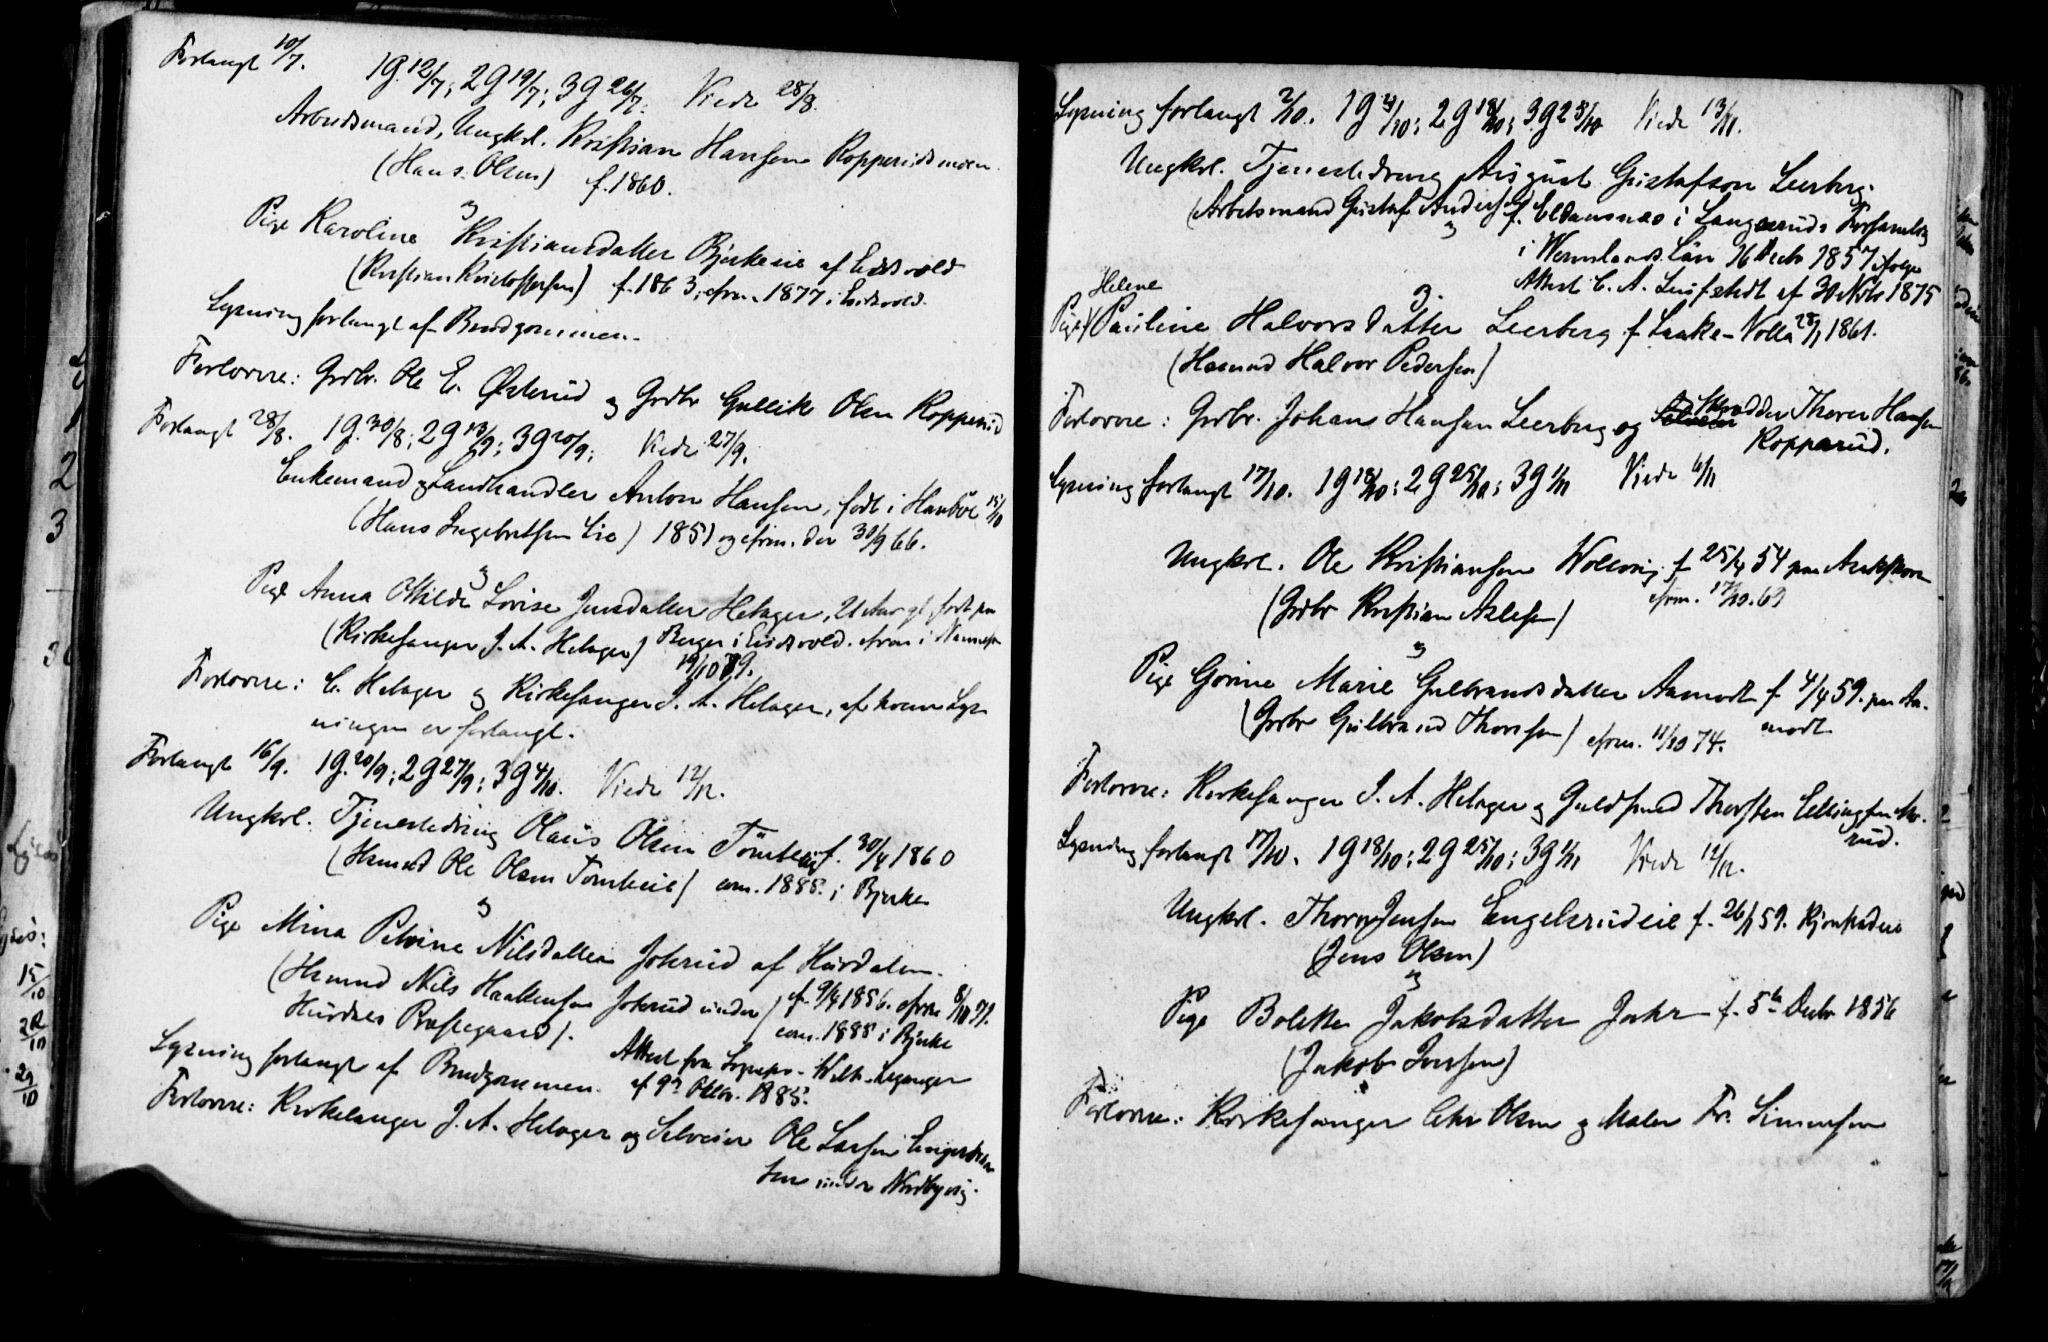 Forlangt 10/7. 1g. 12/7; 2g 19/7; 3g 26/7; Viede 28/8.
Arbeidsmand, Ungkrl. Kristian Hansen Ropperudsmoen.
(Hans Olsen) f. 1860.
og
Pige Karoline Kristiansdatter Bjerkeeie af Eidsvold
(Kristian Kristoffersen) f. 1863, cfrm. 1877 i Eidsvold.
Lysning forlangt af Brudgommen.
Forlovere: Grdbr. Ole E. Østerud og Grdbr Gullik Olsen Ropperud
Forlangt 28/8. 1g. 30/8; 2g 13/9; 3g 20/9; Viede 27/9.
Enkemand og Landhandler Anton Hansen, født i 15/10
(Hans Ingebretsen Lie) 1851 og cfrm. den 30/9 66.
og
Pige Anna Othilde Lovise Jensdatter Helager, 21 Aar gl. født paa
(Kirkesanger J. A. Helager) Berger i Eidsvold. cfrm i Nannestad
19/10 79.
Forlovere: C. Helager og Kirkesanger J. A. Helager, af hvem Lys-
ningen er forlangt.
Forlangt 16/9. 1g. 20/9; 2g 27/9; 3g 4/10. Viede 12/12.
Ungkrl. Tjenestedreng Olaus Olsen Tømteeie f. 30/4 1860
(Hsmnd Ole Olsen Tømteeie) com. 1885 i Bjerke
og
Pige Mina Petrine Nilsdatter Jøhrud af Hurdalen.
(Hsmnd Nils Haakensen Jøhrud under) f. 9/4 1856. cfrm 8/10 71.
Hurdals Præstegaard). com. 1885 i Bjerke
Lysning forlangt af Brudgommen. Attest fra Sogneps. Leganger
af 9de Oktbr. 1885.
Forlovere: Kirkesanger J. A. Helager og Selveier Ole Larsen
under Nordbyeie.
Lysning forlangt 2/10. 1g 4/10; 2g 18/10; 3g 25/10 Viede 13/11.
Ungkrl. Tjenestedreng August Gustafson Leerberg.
(Arbeidsmand Gustaf Anderson f. Eldansnæs i Langeruds Forsamling
og
i Wermlands Län 16 Decbr 1857 ifølge
Attest C. A. af 30 Novbr 1875
Helene
Pige Pauline Halvorsdatter Leerberg f. Laake-Nolla 28/1 1861.
og
(Hsmnd Halvor Pedersen)
Forlovere: Grdbr. Johans Hansen Leerberg og Skrædder Thorer Hansen
Ropperud.
Lysning forlangt 17/10. 1g 18/10; 2g 25/10; 3g 1/11 Viede 6/11
Ungkrl. Ole Kristiansen Wolleng f. 25/4 54 paa
(Grdbr Kristian Aslesen) cfrm. 17/10. 69
og
Pige Gorine Marie Gulbrandsdatter Aamodt f 4/4 59. paa Aa-
(Grdbr Gulbrand Thorsen) cfrm. 11/10 74. modt
Forlovere: Kirkesanger J. A. Helager og Guldsmed Thorsten Ellingsen Mo-
rud.
Lysning forlangt 17/10. 1g 18/10; 2g 25/10; 3g 1/11 Viede 12/12.
Ungkrl. Thorer Jensen Engelsrudeie f. 26/1 59. Kjonstadeie
(Jens Olsen)
og
Pige Bolette Jakobsdatter Jahr f. 5te Decbr 1856
(Jakob Iversen)
Forlovere: Kirkesanger Chr Olsen og Maler Fr. Simensen